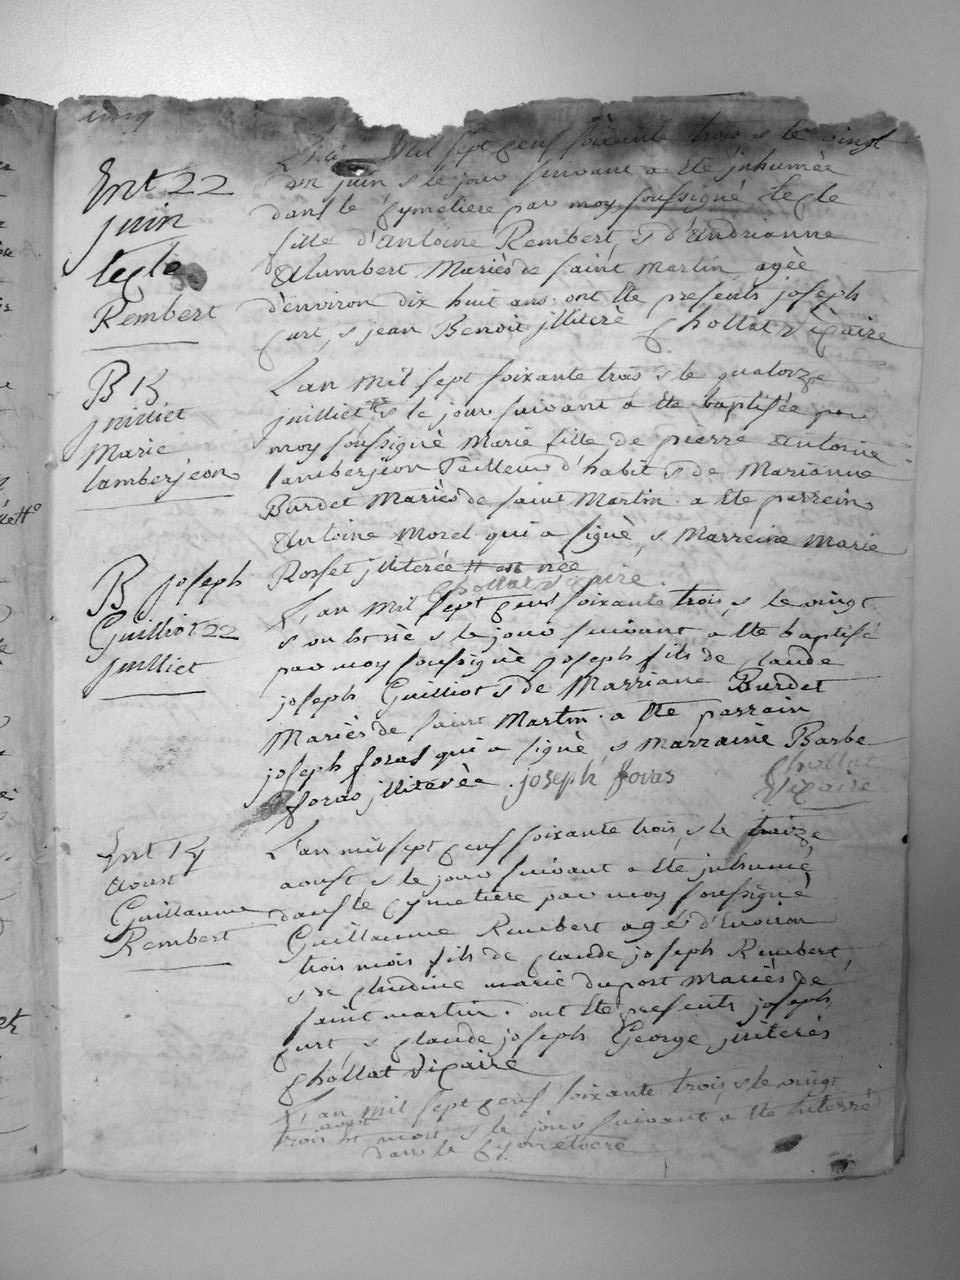 cinq
Ent 22
juin
tecle
Rembert
L'an Mil sept cens soixante trois & le vingt
juin & le jour suivant a ete inhumèe
dans le Cymetiere par moy soussigné tecle
fille d'antoine Rembert, & d'andrianne
alumbert Mariès de saint Martin agèe
d'environ dix huit ans. ont ete presents joseph
Curt, & jean Benoit illiterè Chollat vicaire
B 15
juilliet
Marie
lamberjeon
L'an Mil sept soixante trois & le quatorze
juilliet & le jour suivant a ete baptisée par
moy soussignè Marie fille de pierre antoine
lamberjeon Tailleur d'habit & de Marianne
Burdet Mariès de saint Martin. a ete parrein
Antoine Morel qui a signè, & Marreine Marie
Rosset illiterée
Chollat vicaire.
B joseph
Guilliot 22
juilliet
L'an Mil sept cens soixante trois, & le vingt
& un est nè & le jour suivant a ete baptisé
par moy soussignè joseph fils de claude
joseph Guilliot & de Marriane Burdet
Mariès de saint Martin. a ete parrain
joseph foras qui a signè & marraine Barbe
foras illiterèe. joseph foras
Chollat
Vicaire
Ent 14
Aoust
Guillaume
Rembert
L'an mil sept cens soixante trois, & le traize
aoust & le jour suivant a ete inhumé
dans le cymetiere par moy soussignè
Guillaume Rembert agé d'Environ
trois mois fils de claude joseph Rembert,
& de claudine marie duport Mariès de
saint martin. ont ete presents joseph
Curt & claude joseph George illiterès
Chollat vicaire
L'an mil sept cens soixante trois, & le vingt
trois aoust est mort & le jour suivant a ete enterré
dans le Cymetiere